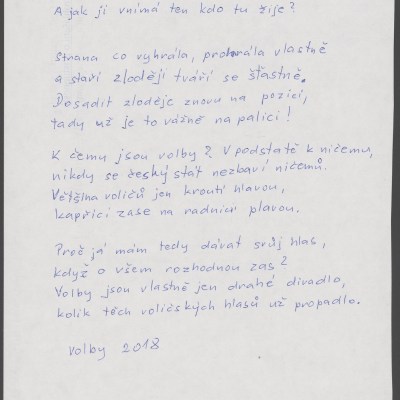 A jak ji vnímá ten kdo tu žije?
Strana co vyhrála, prohrála vlastně
a staří zloději tváří se šťastně.
Dosadit zloděje znovu na pozici,
tady už je to vážně na palici!
K čemu jsou volby? V podstatě k ničemu,
nikdy se český stát nezbaví ničemů.
Většina voličů jen kroutí hlavou,
kapříci zase na radnici plavou.
Proč já mám tedy dávat svůj hlas,
když o všem rozhodnou zas?
Volby jsou vlastně jen drahé divadlo,
kolik těch voličských hlasů už propadlo.
Volby 2018